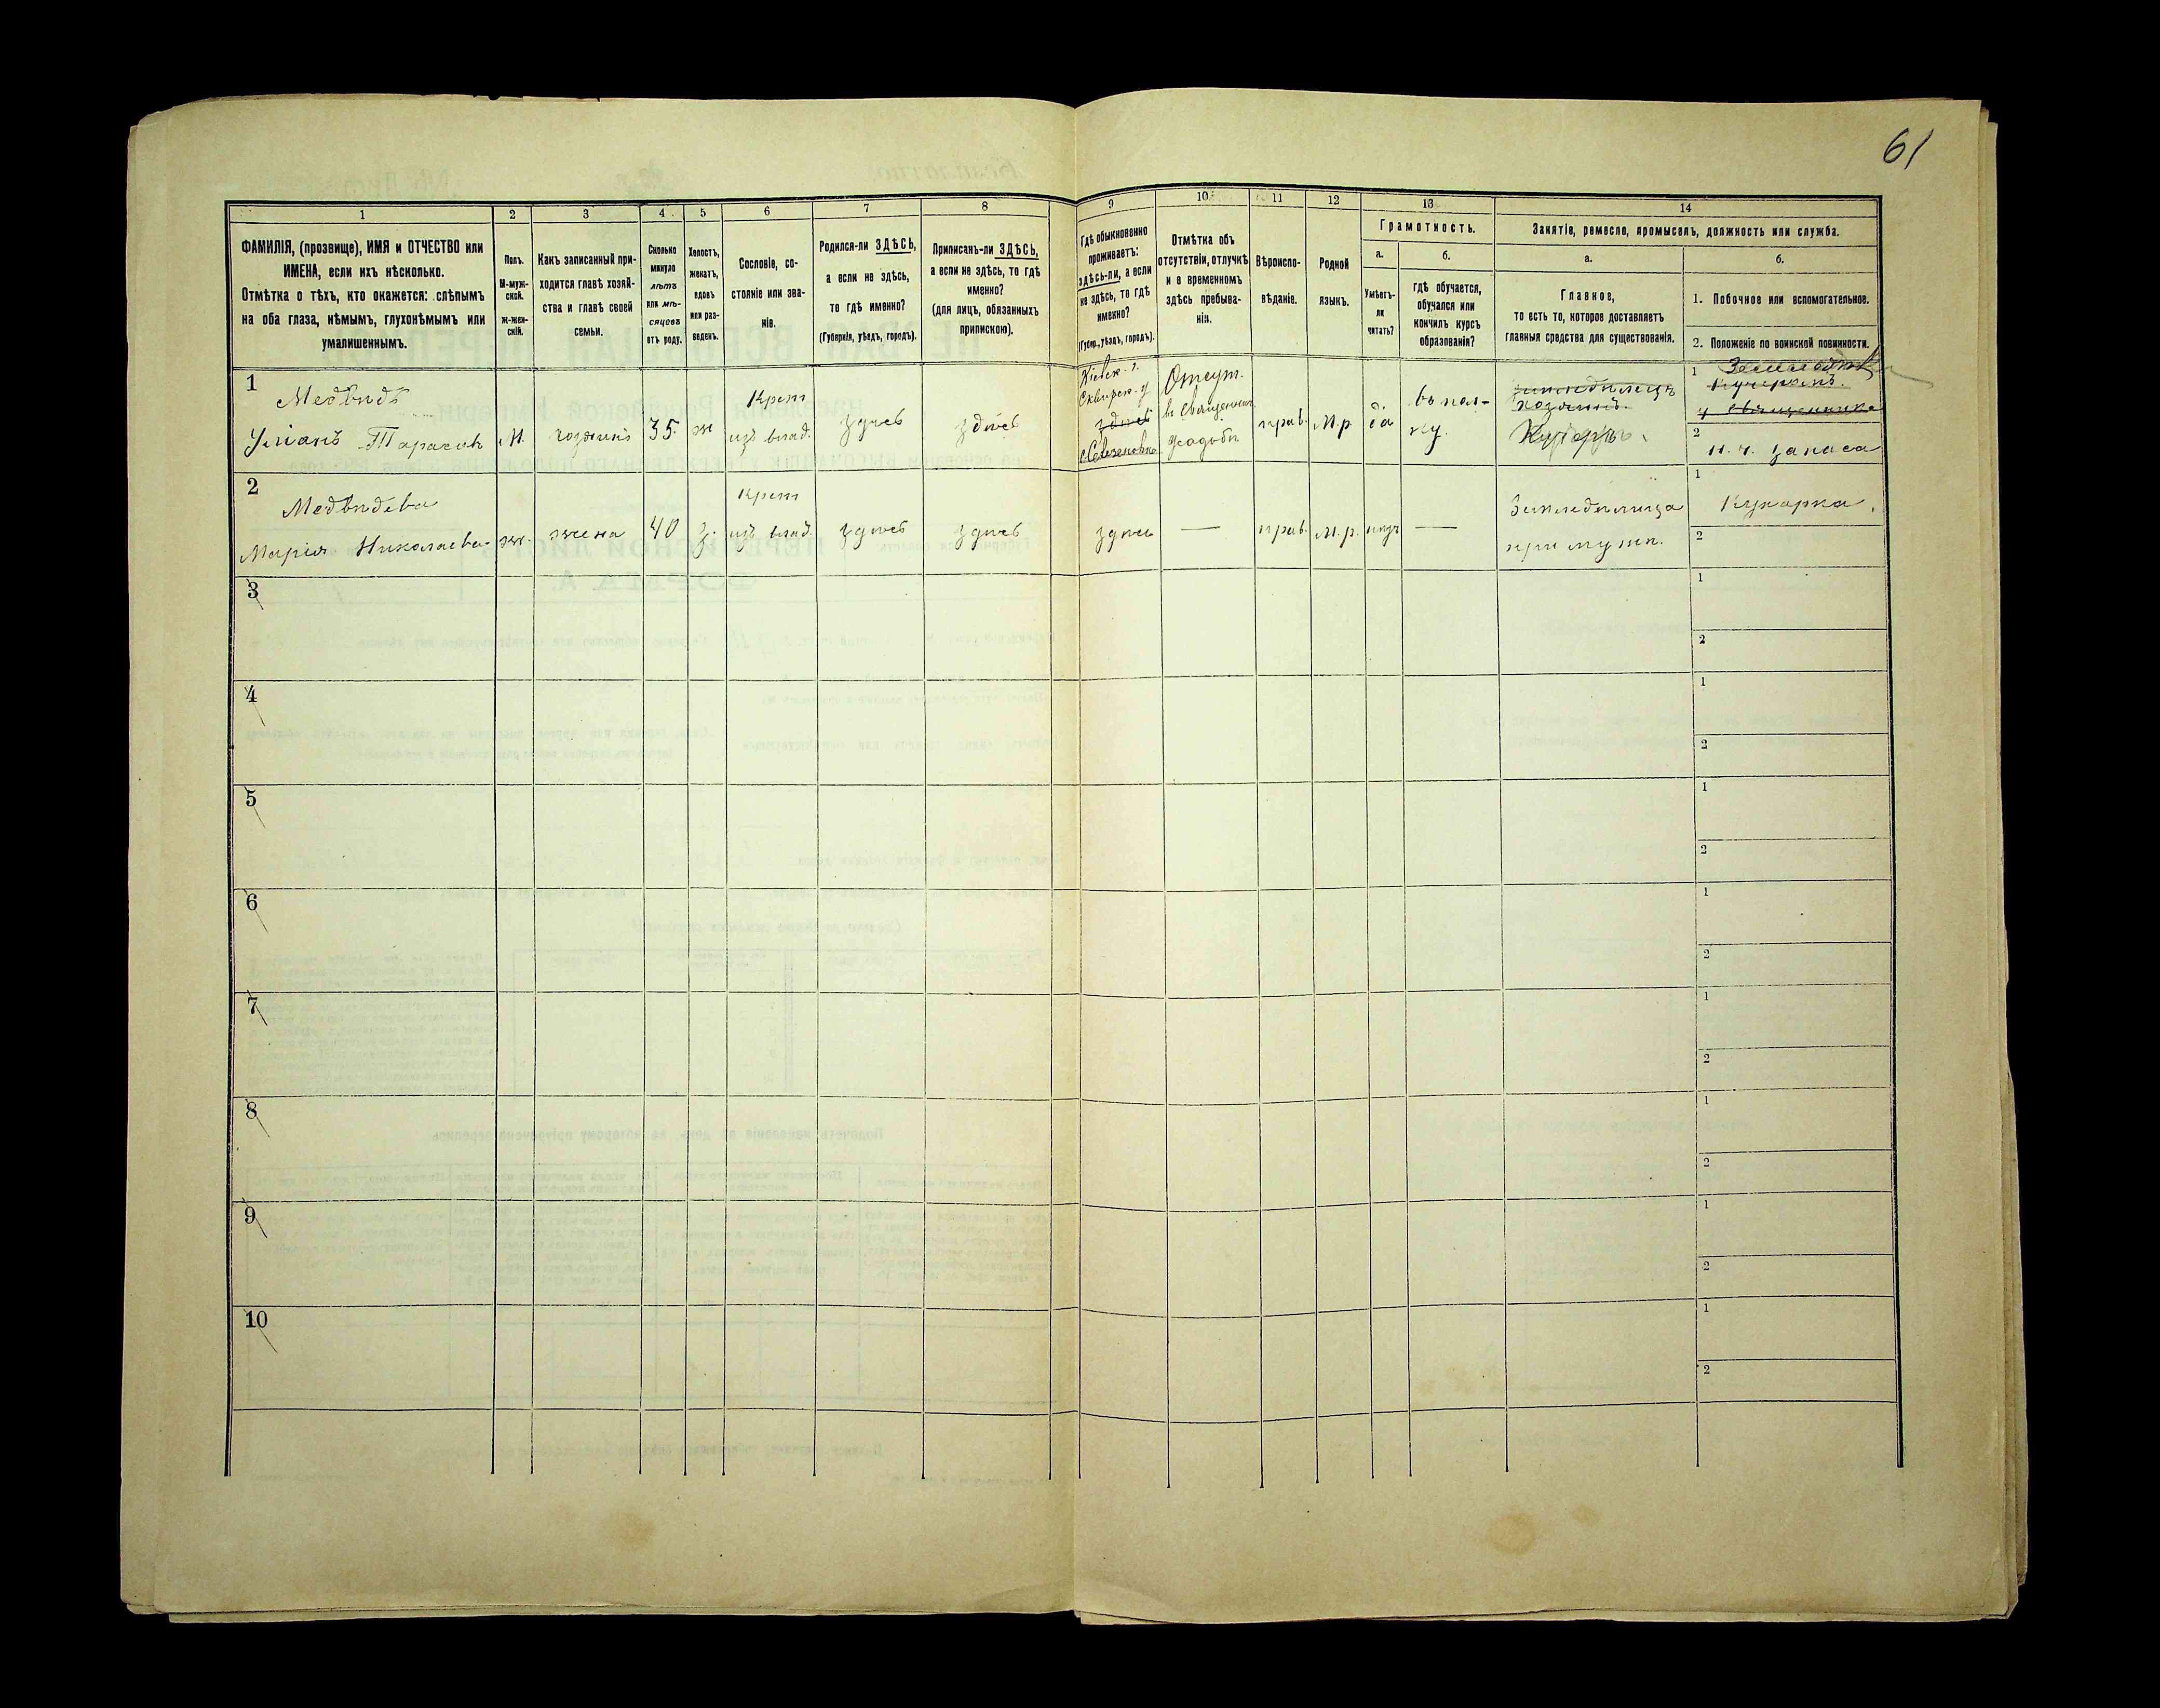 61
1 2 3 4 5 6 7 8 9 10 11 12 13 14
ФАМИЛІЯ, (прозвище), ИМЯ и ОТЧЕСТВО или
ИМЕНА, если ихъ нѣсколько.
Отмѣтка о тѣхъ, кто окажется: слѣпымъ
на оба глаза, нѣмымъ, глухонѣмымъ или
умалишеннымъ.
Полъ.
М-муж-
ской.
Ж-жен-
скій.
Какъ записанный при-
ходится главѣ хозяй-
ства и главѣ своей
семьи.
Сколько
минуло
лѣтъ
или мѣ-
сяцевъ
отъ роду.
Холостъ,
женатъ,
вдовъ
или раз-
веденъ.
Сословіе, со-
стояніе или зва-
ніе.
Родился-ли ЗДѢСЬ,
а если не здѣсь,
то гдѣ именно?
(Губернія, уѣздъ, городъ).
Приписанъ-ли ЗДѢСЬ,
а если не здѣсь, то гдѣ
именно?
(для лицъ, обязанныхъ
припискою).
Гдѣ обыкновенно
проживаетъ:
здѣсь-ли, а если
не здѣсь, то гдѣ
именно?
(Губер., уѣздъ, городъ).
Отмѣтка объ
отсутствіи, отлучкѣ
и о временномъ
здѣсь пребыва-
ніи.
Вѣроиспо-
вѣданіе.
Родной
языкъ.
Грамотность.
а.
Умѣетъ-
ли
читать?
б.
гдѣ обучается,
обучался или
кончилъ курсъ
образованія?
Занятіе, ремесло, промыселъ, должность или служба.
а.
Главное,
то есть то, которое доставляетъ
главныя средства для существованія.
б.
1. Побочное или вспомогательное.
2. Положеніе по воинской повинности.
1
Медвѣдь
Уліанъ Тарасовъ
М.
хозяинъ
35.
ж
Крест
изъ влад.
здѣсь
здѣсь
Кіевск. г.
Сквирск. у
здѣсь
Отсут.
въ Священнич.
усадьбѣ
прав.
М.р.
да
въ пол-
ку.
земледѣлецъ
хозяинъ.
Кучеръ.
1
Кучеромъ.
у священника
2
н. ч. запаса
2
Медвѣдева
Марія Николаева
ж.
жена
40
з.
Крест
изъ влад.
здѣсь
здѣсь
здѣсь
—
прав.
М.р.
нѣтъ
—
Земледѣлица
при мужѣ.
1
Кухарка.
2
3
1
2
4
1
2
5
1
2
6
1
2
7
1
2
8
1
2
9
1
2
10
1
2